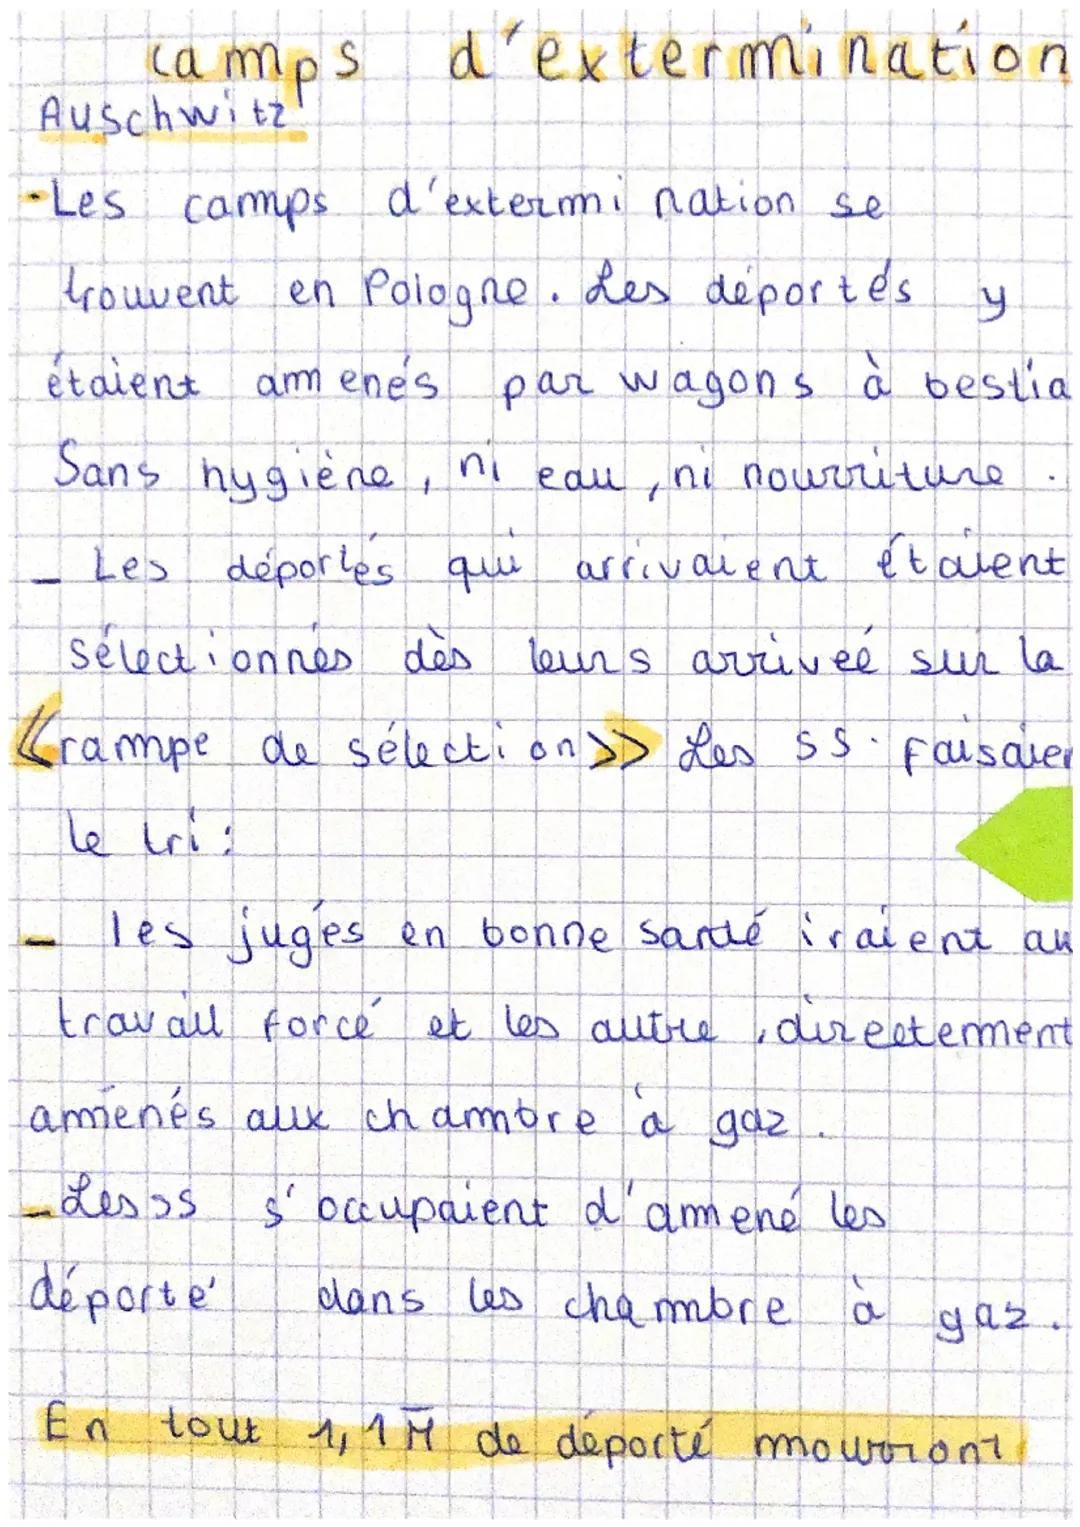 camps d'extermination
Auschwitz
-Les camps d'extermination se
trouvent en Pologne. Les déportés y
étaient amenés par wagons à bestia
Sans hygiène, ni eau, ni nourriture.
- Les déportés qui arrivaient étaient
sélectionnés dès leurs arriveé sur la
«rampe de sélection» Les SS. faisaien
le tri :
- les jugés en bonne santé iraient au
travail forcé et les autre, directement
amenés aux chambre à gaz.
- Les ss s'occupaient d'amené les
déporté dans les chambre à gaz.
En tout 1,1M de déporté mourront